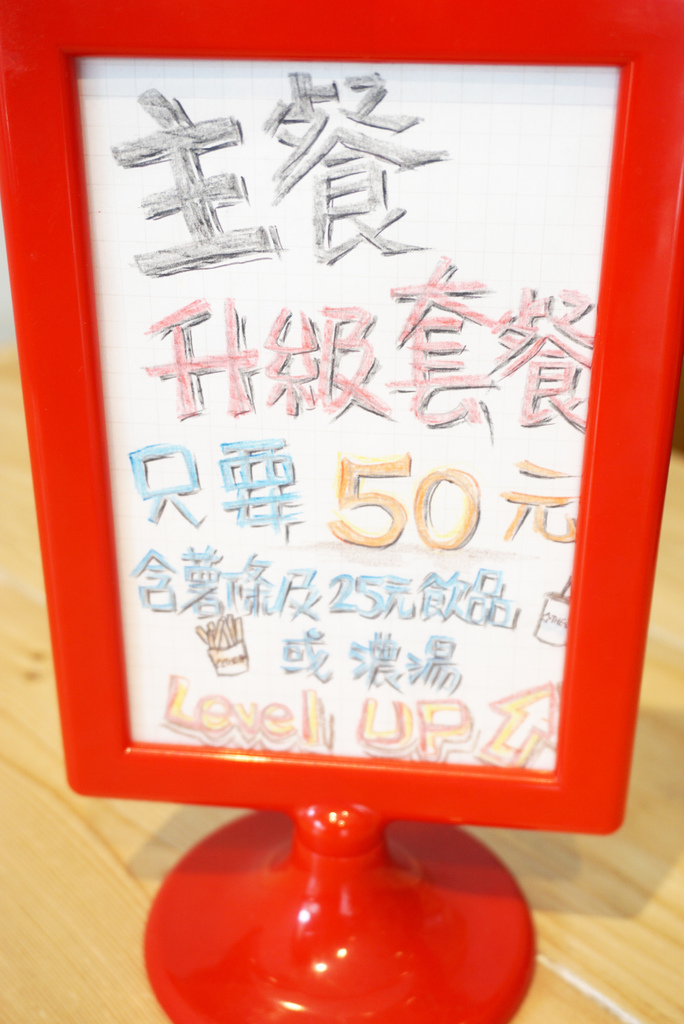 主餐
升級套餐
只要 50 元
含薯條及25元飲品
或 濃湯
Level UP